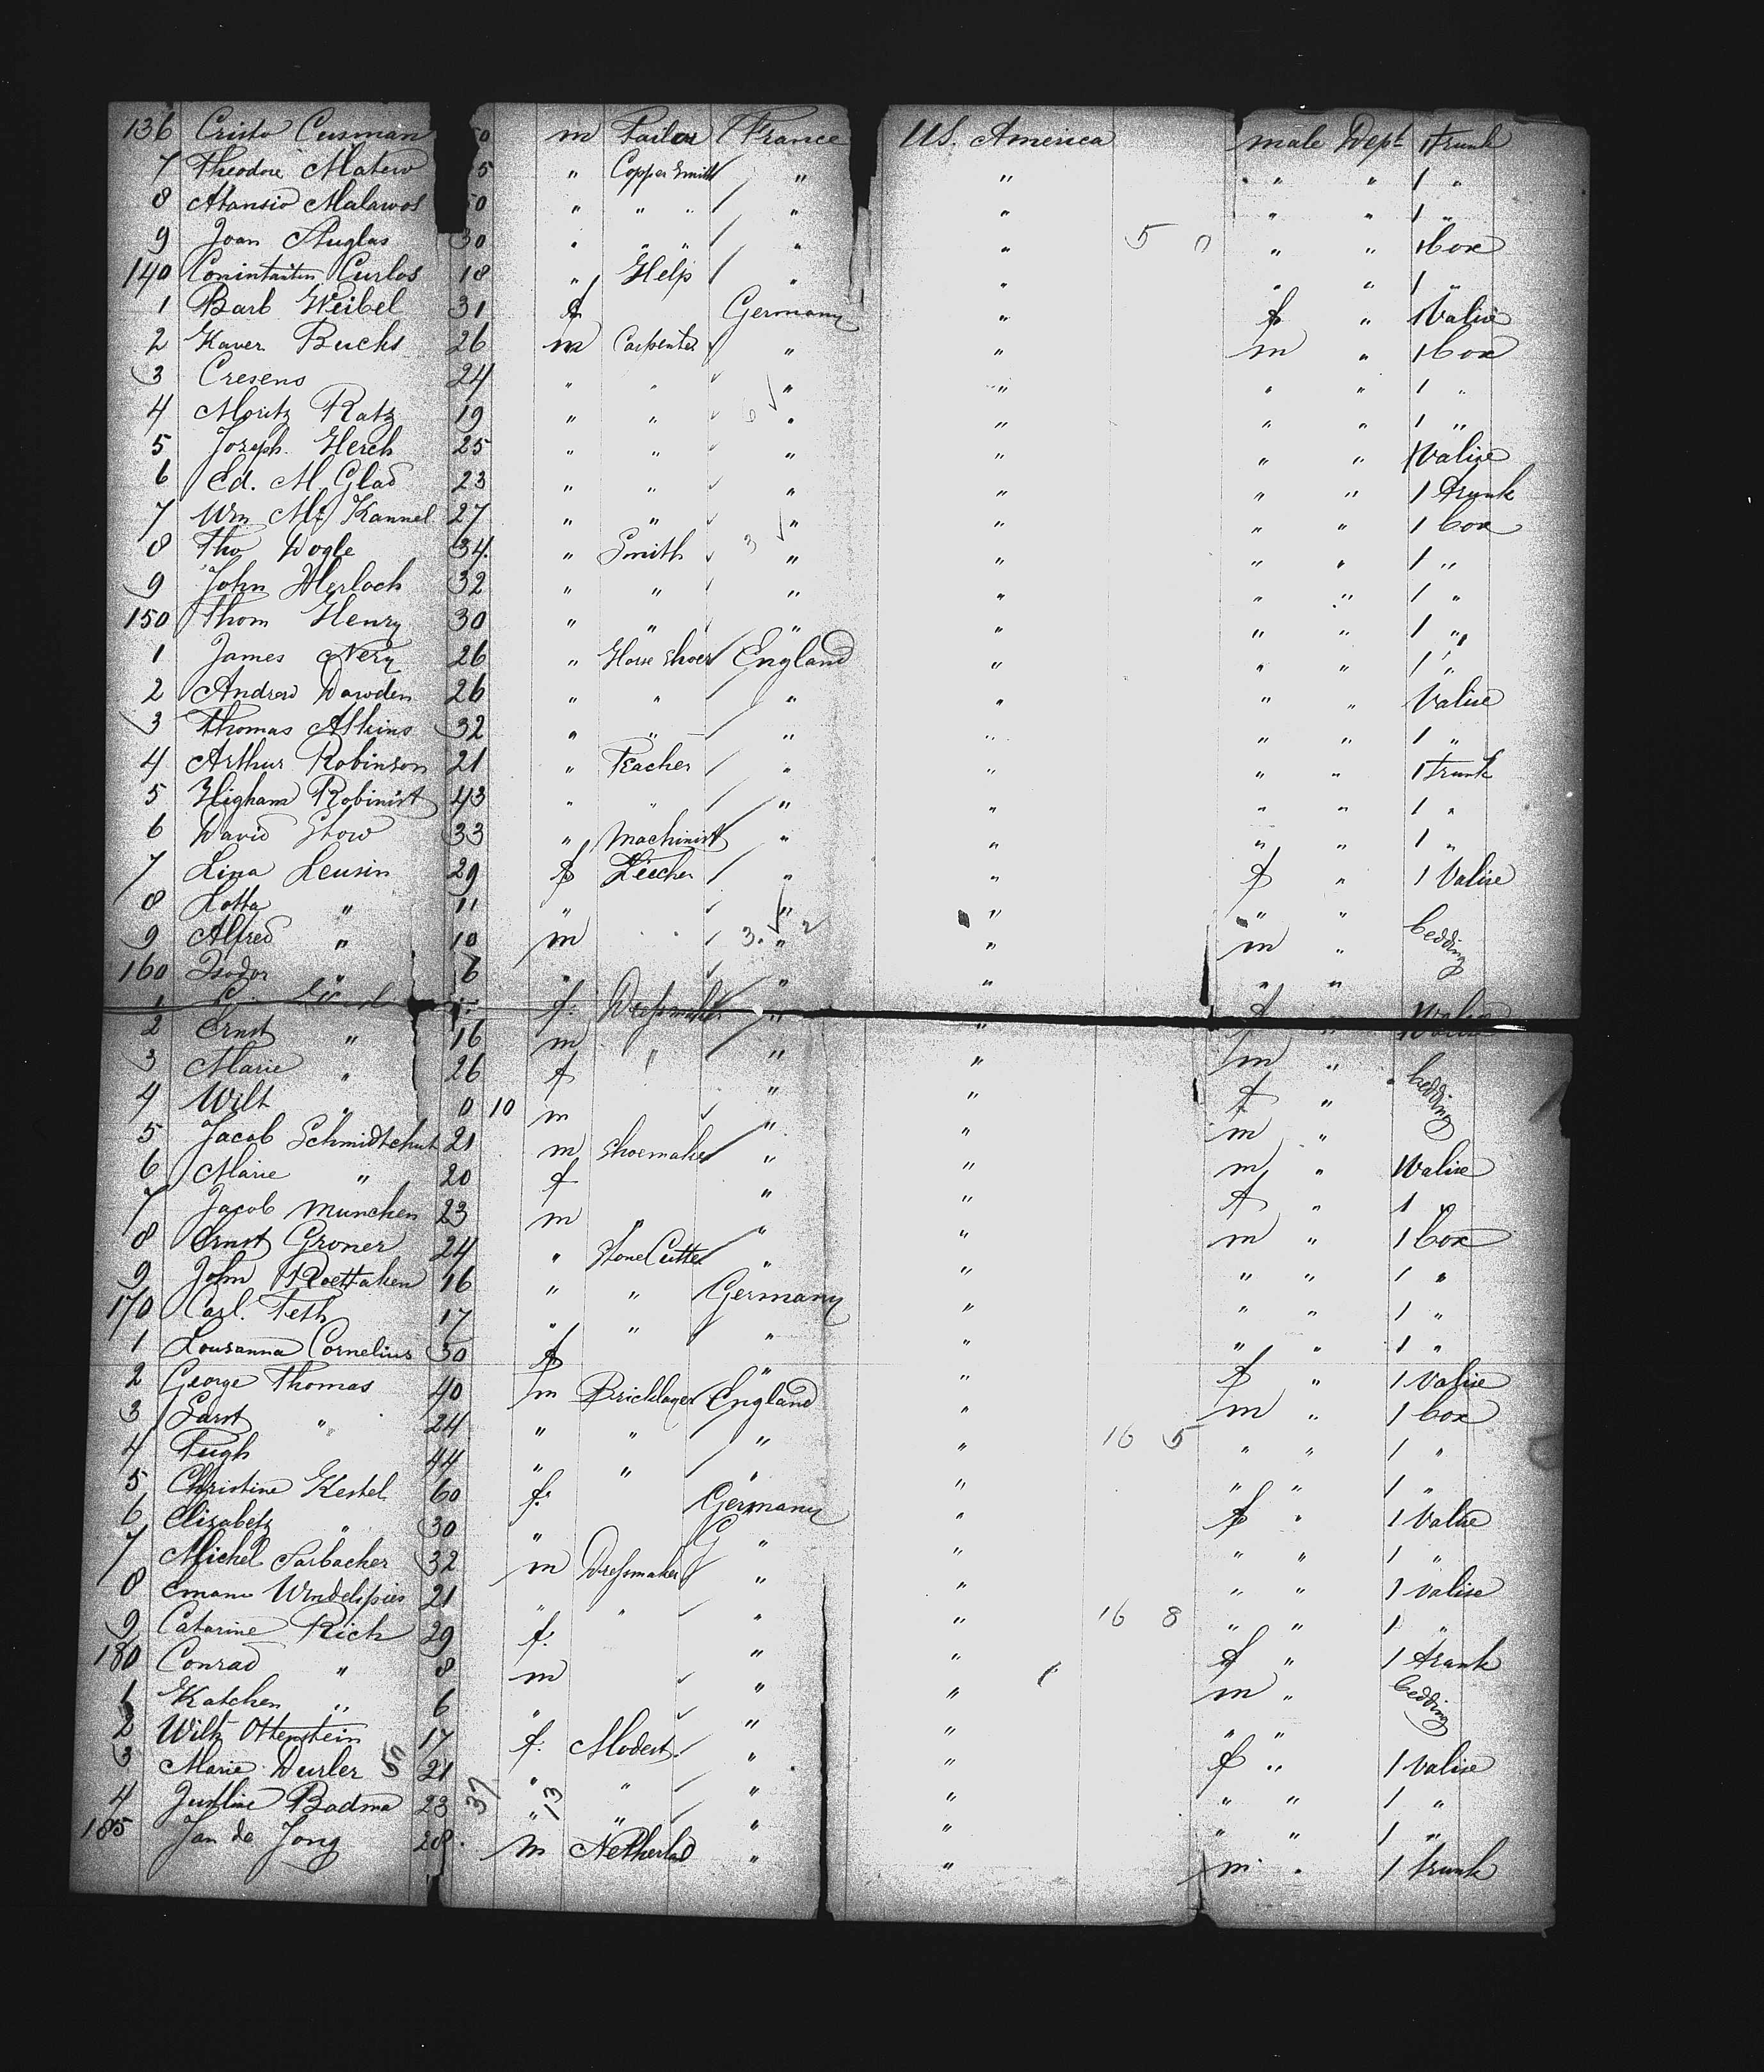 136 Cristo Cusman 0 m Tailor France U.S. America male Dept 1 trunk
7 Theodore Matew 5 " Copper Smith " " " " 1 "
8 Atansio Malawos 0 " " " " " " " 1 "
9 Joan Auglas 30 " " " " " 5 0 " " 1 box
140 Conintantin Curlos 18 " Help " " " " 1 "
1 Barb Weibel 31 f Germany " f " 1 Valise
2 Xaver Buchs 26 m Carpenter " " m " 1 box
3 Cresens 24 " " " " " " 1 "
4 Moritz Ratz 19 " " " " " " 1 "
5 Joseph Herch 25 " " " " " " 1 Valise
6 Ed. M. Glad 23 " " " " " " 1 trunk
7 Wm Mc Kannel 27 " " " " " " 1 box
8 Tho Dogle 34 " Smith 3 " " " " 1 "
9 John Herloch 32 " " " " " " 1 "
150 Thom Henry 30 " " " " " " 1 "
1 James Nery 26 " Horse shoer England " " " 1 "
2 Andrew Dawden 26 " " " " " " Valise
3 Thomas Atkins 32 " " " " " " 1 "
4 Arthur Robinson 21 " Teacher " " " " 1 trunk
5 Higham Robinist 43 " " " " " " 1 "
6 David Stow 33 " Machinist " " " " 1 "
7 Lina Leusin 29 f Teecher " " f " 1 Valise
8 Lotta " 11 " " " " "
9 Alfred " 10 m 3. 2 " " m " bedding
160 Isodor " 6 " " " " "
1 f. Dressmaker " f " 1 Valise
2 Ernst " 16 m " " " m "
3 Marie " 26 f " " f " bedding
4 Wilt " 0 10 m " " m "
5 Jacob Schmidtchut 21 m Shoemaker " " m " 1 Valise
6 Marie " 20 f " " f " 1 "
7 Jacob Munchen 23 m " " " m " 1 box
8 Ernst Groner 24 " Stone Cutter " " " " 1 "
9 John Roettaken 16 " " Germany " " " 1 "
170 Carl Feth 17 " " " " " " 1 "
1 Lousanna Cornelius 30 f " " f " 1 Valise
2 George Thomas 40 m Bricklayer England " m " 1 box
3 Sarst " 24 " " " " 16 5 " " 1 "
4 Pugh 44 " " " " " " 1 "
5 Christine Kestel 60 f. Germany " f " 1 Valise
6 Elisabetz " 30 " " " " " 1 "
7 Michel Sarbacher 32 m Dressmaker " " " " 1 Valise
8 Emanu Wndelspies 21 " " " " 16 8 " " 1 "
9 Catarine Rich 29 f. " " f " 1 trunk
180 Conrad " 8 m " " m " bedding
1 Katchen " 6 " " " " "
2 Wilh Ottenstein 17 f. Modest. " " f " 1 Valise
3 Marie Durler 50 21 37 " 13 " " " " " 1 "
4 Justine Badma 23 " " " " " " 1 "
185 Jan de Jong 28. m Netherlad " " m " 1 trunk